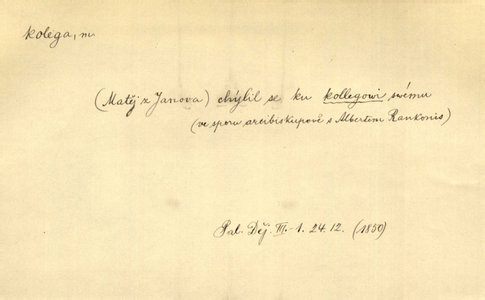 kolega, m.
(Matěj z Janova) chýlil se ku kollegowi swému
(ve sporu arcibiskupově s Albertem Rankonis)
Pal. Děj. III.-1. 24.12. (1850)